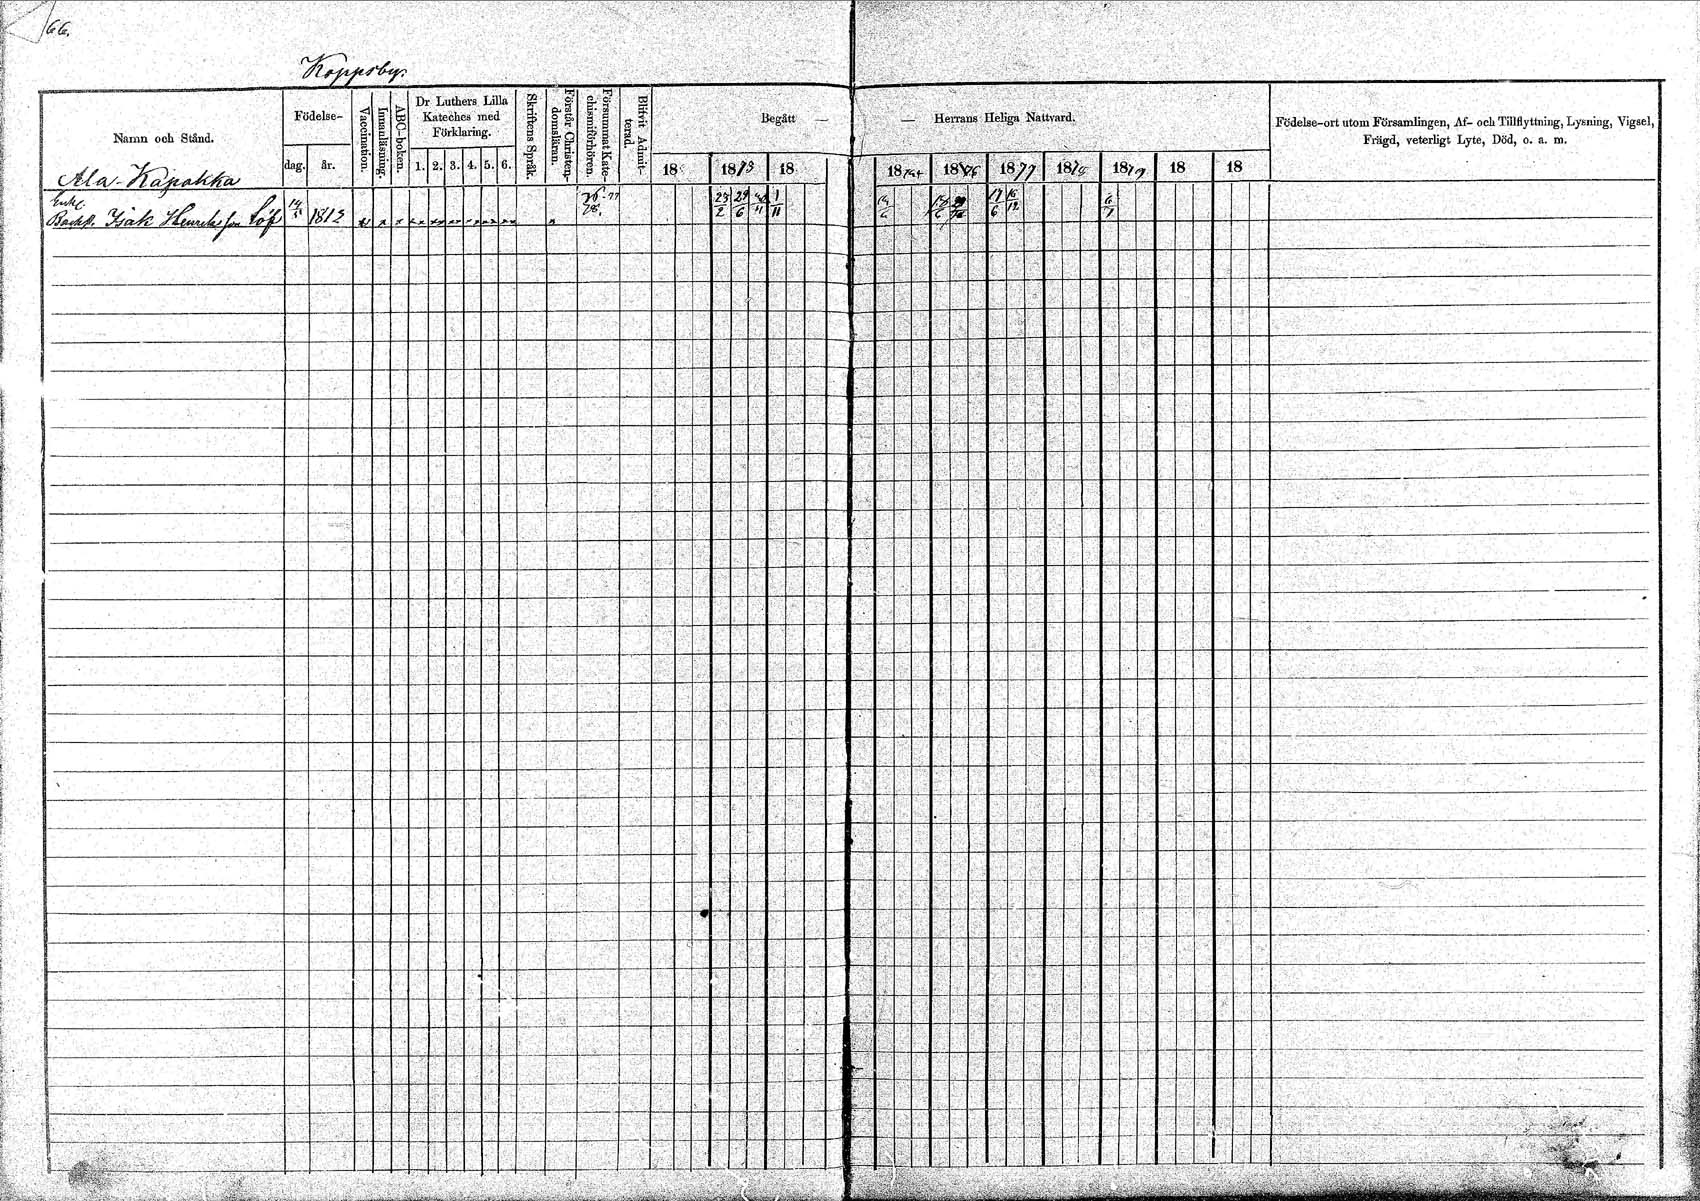 66.
Koppsby.
Namn och Stånd.
Födelse-
dag.
år.
Vaccination.
Innanläsning.
ABC-boken.
Dr Luthers Lilla
Kateches med
Förklaring.
1. 2. 3. 4. 5. 6.
Skriftens Språk.
Förstår Christen-
domsläran.
Försummat Kate-
chismiförhören.
Blifvit Admit-
terad.
Begått — — Herrans Heliga Nattvard.
18 1873 18 1876 1877 1878 1879 18 18
Födelse-ort utom Församlingen, Af- och Tillflyttning, Lysning, Vigsel,
Frägd, veterligt Lyte, Död, o. a. m.
Ala-Kapakka
Enkl.
Isak Henriksson Löf 1813 23/2 29/6 1/11 17/6 16/12